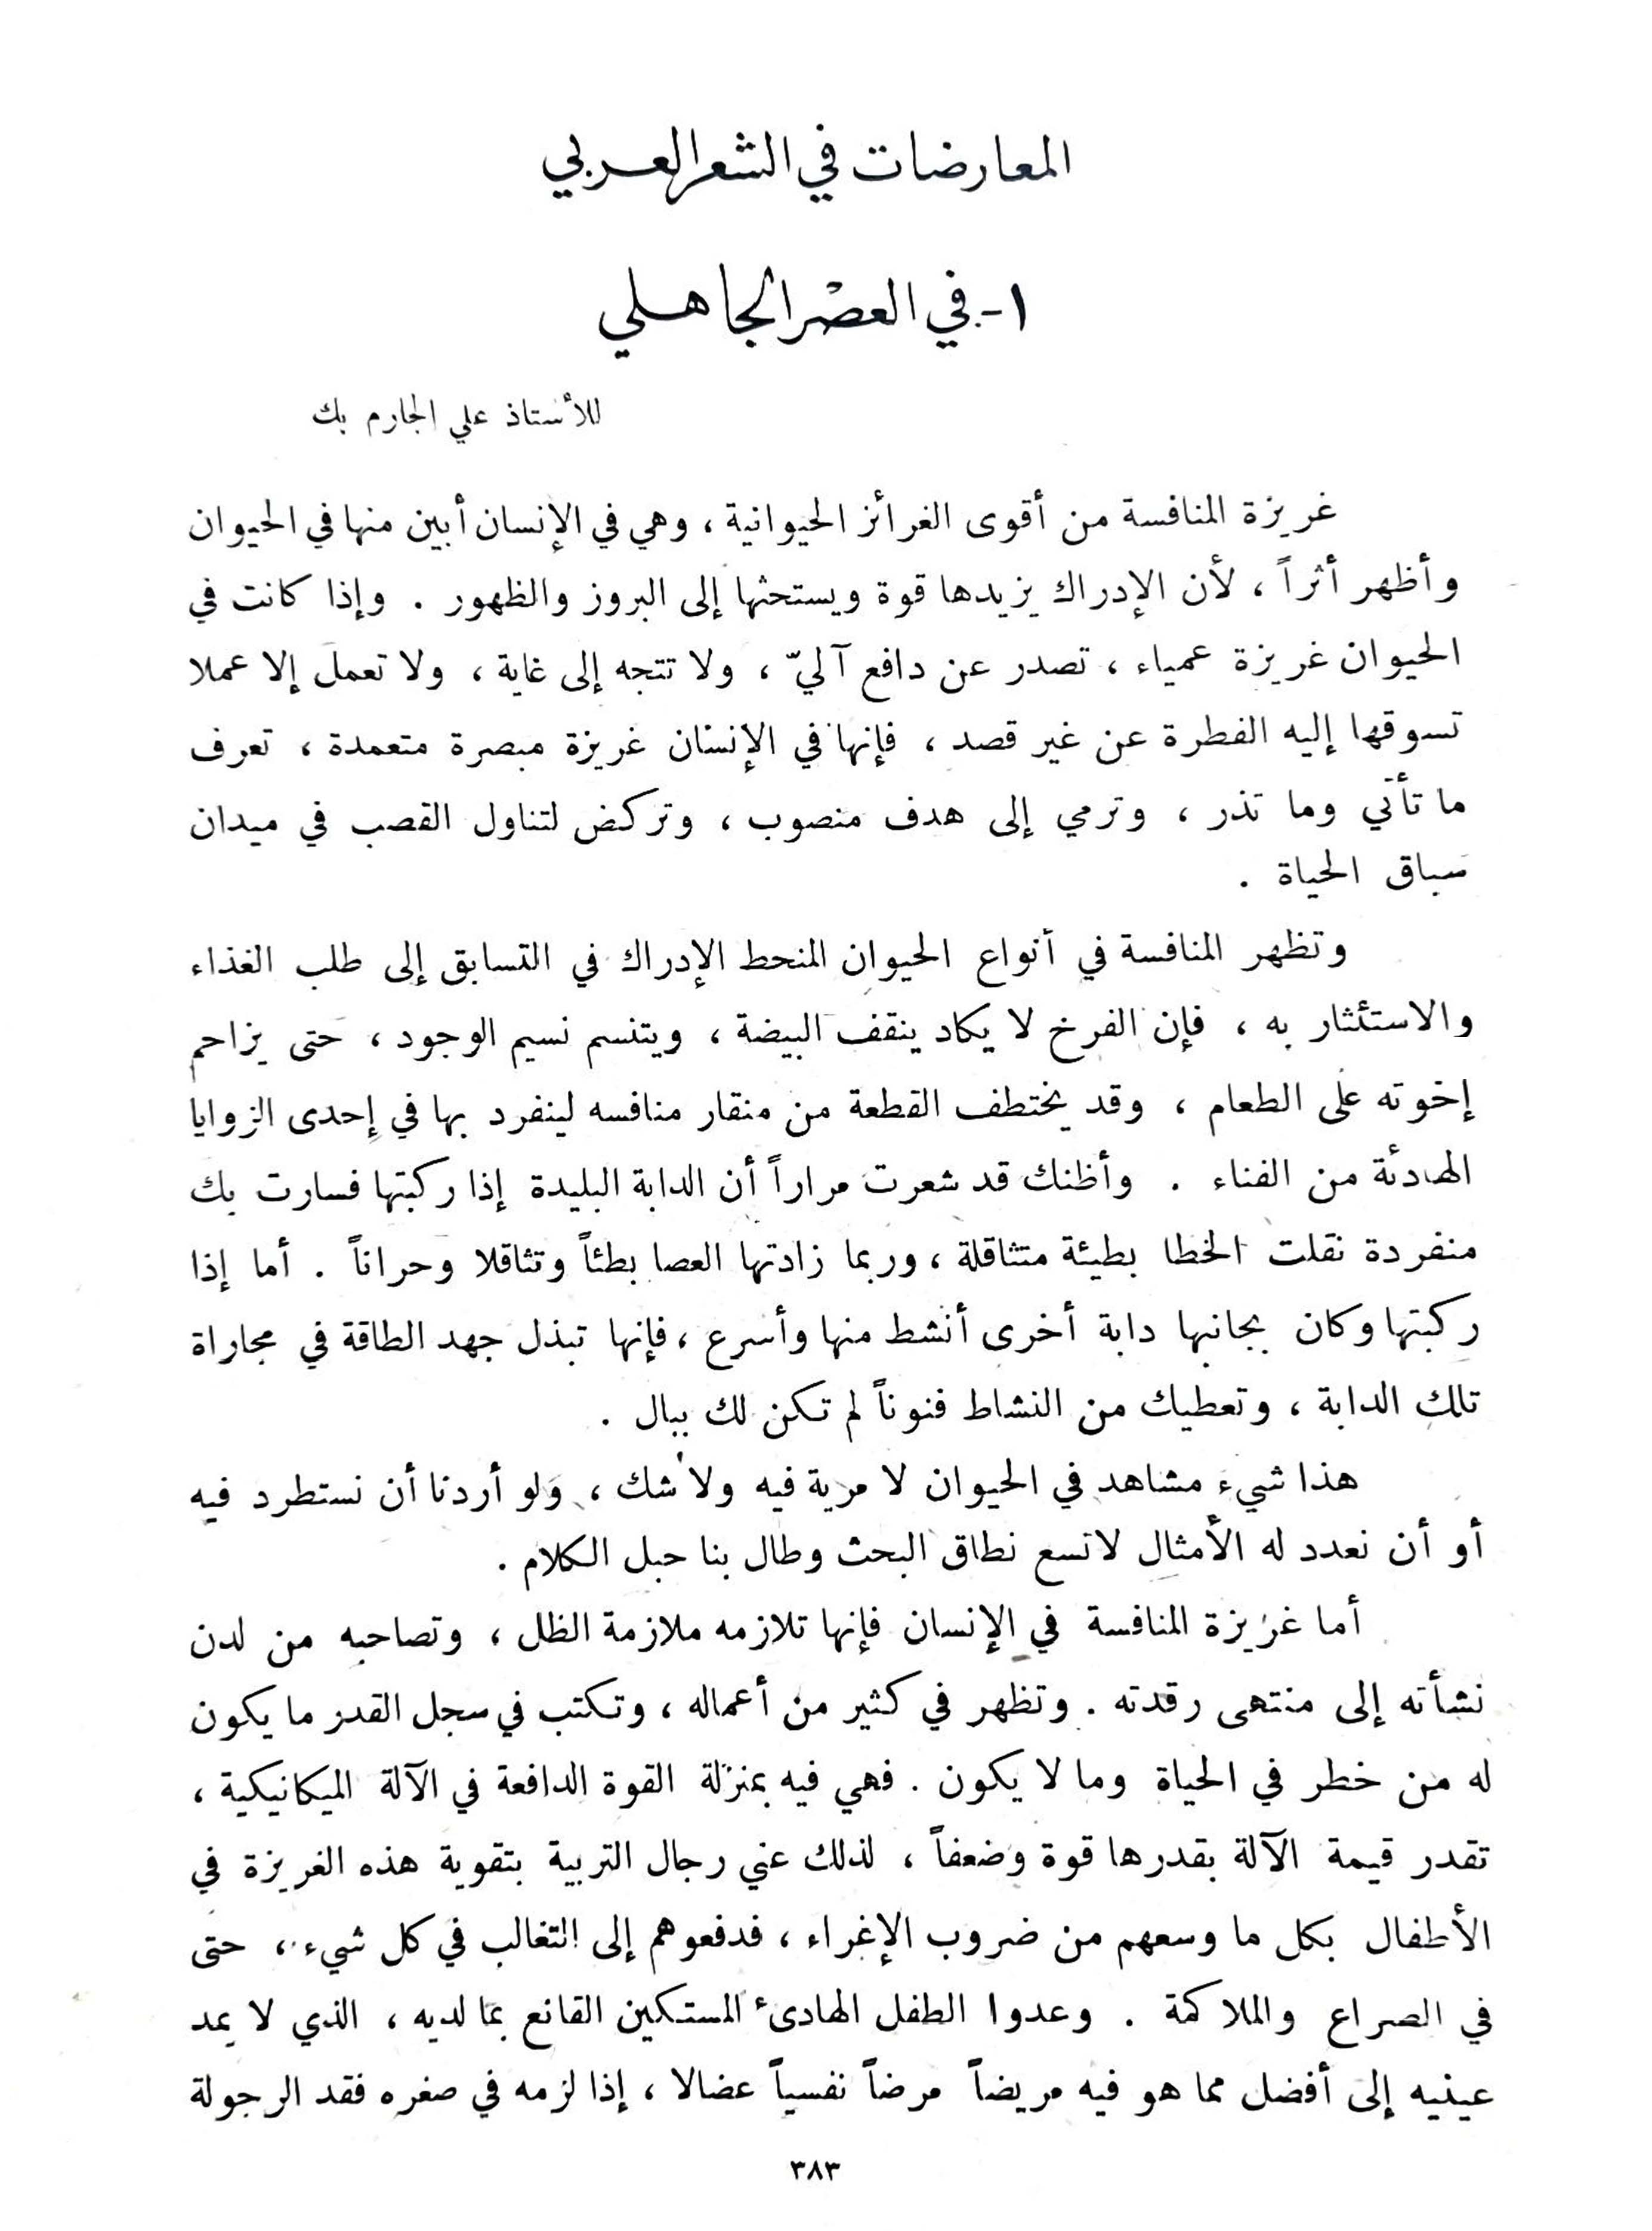 المعارضات في الشعر العربي
١- في العصر الجاهلي
للأستاذ علي الجارم بك
غريزة المنافسة من أقوى الغرائز الحيوانية ، وهي في الإنسان أبين منها في الحيوان
وأظهر أثراً ، لأن الإدراك يزيدها قوة ويستحثها إلى البروز والظهور . وإذا كانت في
الحيوان غريزة عمياء ، تصدر عن دافع آليّ ، ولا تتجه إلى غاية ، ولا تعمل إلا عملا
تسوقها إليه الفطرة عن غير قصد ، فإنها في الإنسان غريزة مبصرة متعمدة ، تعرف
ما تأتي وما تذر ، وترمي إلى هدف منصوب ، وتركض لتناول القصب في ميدان
سباق الحياة .
وتظهر المنافسة في أنواع الحيوان المنحط الإدراك في التسابق إلى طلب الغذاء
والاستئثار به ، فإن الفرخ لا يكاد ينقف البيضة ، ويتنسم نسيم الوجود ، حتى يزاحم
إخوته على الطعام ، وقد يختطف القطعة من منقار منافسه لينفرد بها في إحدى الزوايا
الهادئة من الفناء . وأظنك قد شعرت مراراً أن الدابة البليدة إذا ركبتها فسارت بك
منفردة نقلت الخطا بطيئة متثاقلة ، وربما زادتها العصا بطئاً وتثاقلا وحراناً . أما إذا
ركبتها وكان بجانبها دابة أخرى أنشط منها وأسرع ، فإنها تبذل جهد الطاقة في مجاراة
تلك الدابة ، وتعطيك من النشاط فنوناً لم تكن لك ببال .
هذا شيء مشاهد في الحيوان لا مرية فيه ولا شك ، ولو أردنا أن نستطرد فيه
أو أن نعدد له الأمثال لاتسع نطاق البحث وطال بنا حبل الكلام .
أما غريزة المنافسة في الإنسان فإنها تلازمه ملازمة الظل ، وتصاحبه من لدن
نشأته إلى منتهى رقدته . وتظهر في كثير من أعماله ، وتكتب في سجل القدر ما يكون
له من خطر في الحياة وما لا يكون . فهي فيه بمنزلة القوة الدافعة في الآلة الميكانيكية ،
تقدر قيمة الآلة بقدرها قوة وضعفاً ، لذلك عني رجال التربية بتقوية هذه الغريزة في
الأطفال بكل ما وسعهم من ضروب الإغراء ، فدفعوهم إلى التغالب في كل شيء ، حتى
في الصراع والملاكمة . وعدوا الطفل الهادىء المستكين القانع بما لديه ، الذي لا يمد
عينيه إلى أفضل مما هو فيه مريضاً مرضاً نفسياً عضالا ، إذا لزمه في صغره فقد الرجولة
٣٨٣